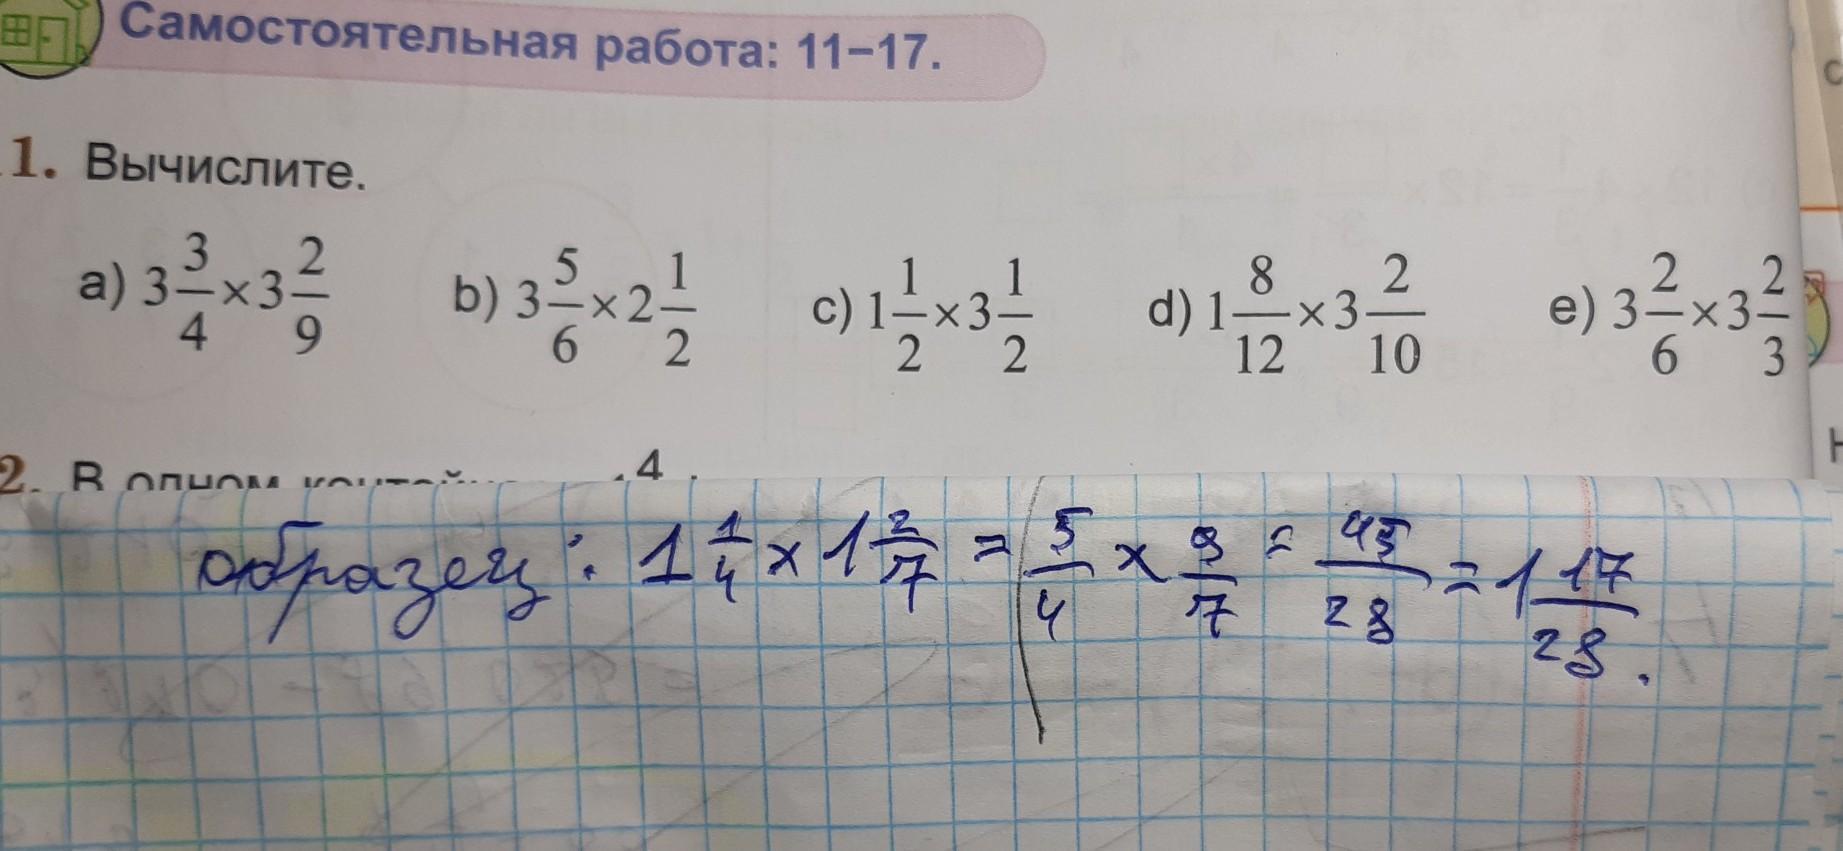 Самостоятельная работа: 11–17.
1. Вычислите.
a) 3 3/4 × 3 2/9 b) 3 5/6 × 2 1/2 c) 1 1/2 × 3 1/2 d) 1 8/12 × 3 2/10 e) 3 2/6 × 3 2/3
2. В одном 4
образец: 1 1/4 x 1 2/7 = 5/4 x 9/7 = 45/28 = 1 17/28.